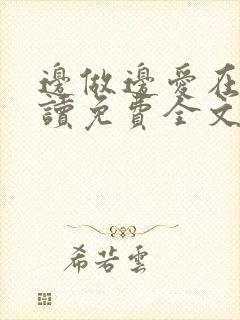 邊做邊愛在
讀免費全文
希若雲